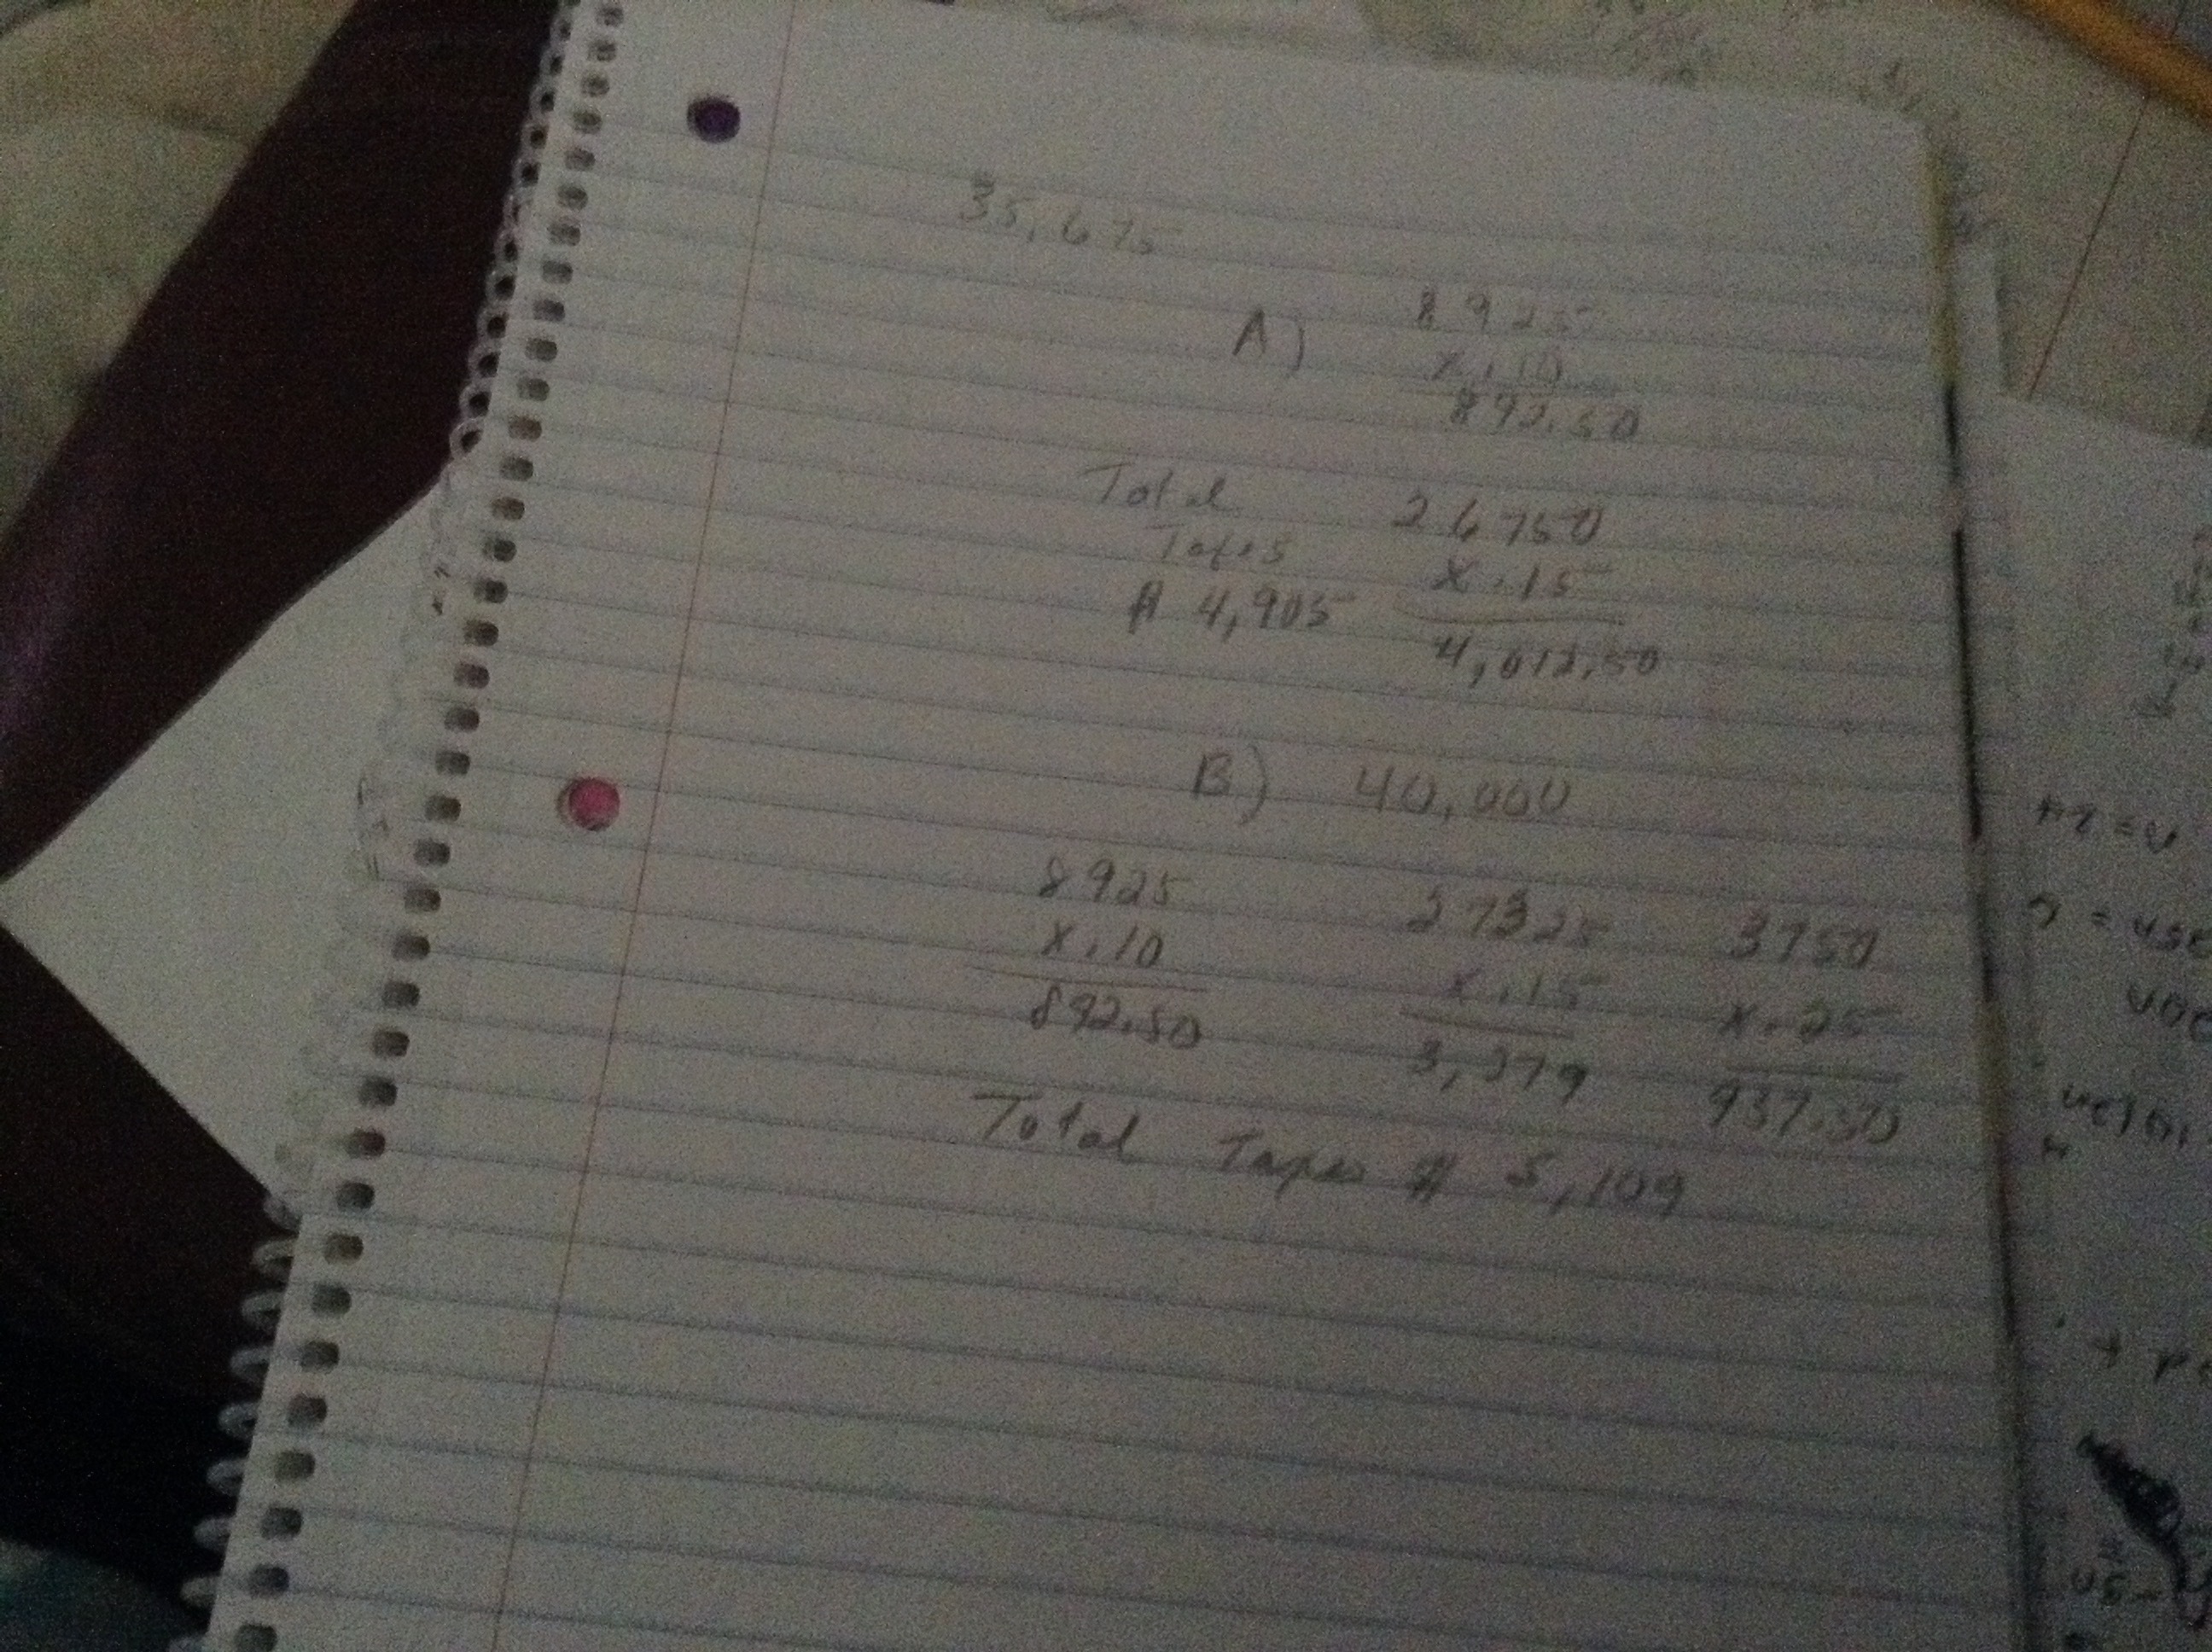 35,675
A) 8925
x.10
892.50
Total 26750
Taxes x.15
# 4,905 4,012.50
B) 40,000
8925 27325 3750
x.10 x.15 x.25
892.50 3,279 937.50
Total Taxes # 5,109